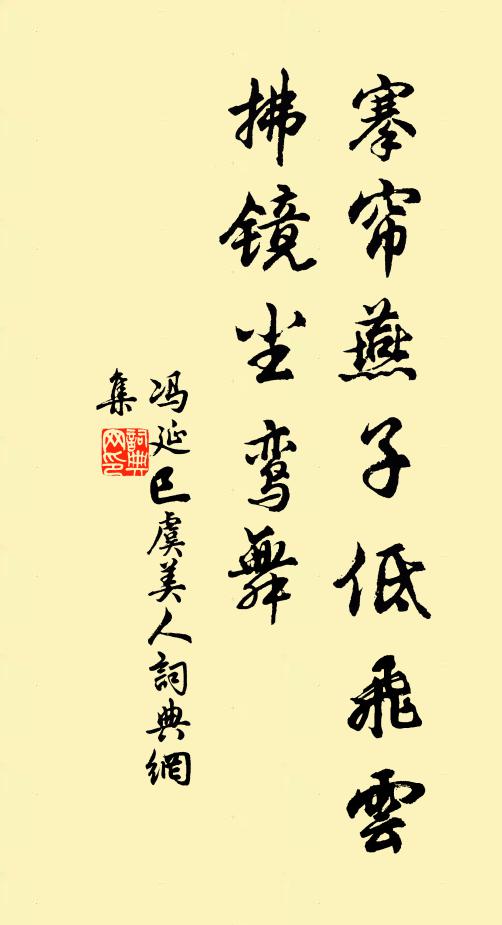 搴帘燕子低飞雲
拂镜尘鸾舞
冯延巳虞美人詞典網
集
詞典网印